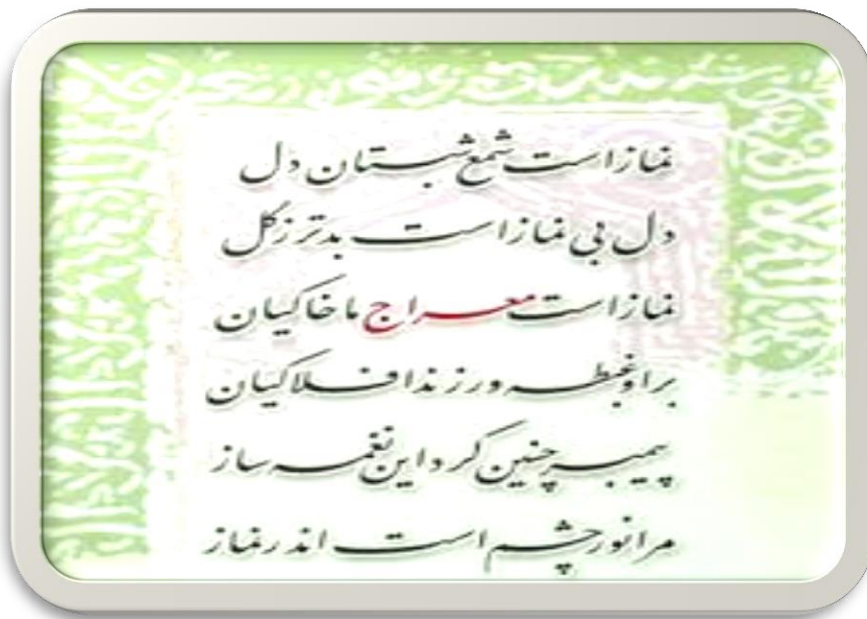 نماز است شمع شبستان دل
دل بی نماز است بدتر ز گل
نماز است معراج ما خاکیان
بر او غبطه ورزند افلاکیان
پیمبر چنین کرد این نغمه ساز
مرا نور چشم است اندر نماز